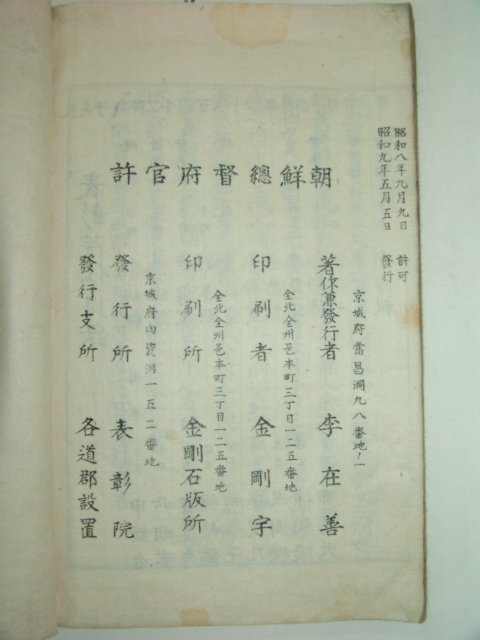 昭和八年九月九日 許可
昭和九年五月五日 發行
朝鮮總督府官許
京城府需昌洞九八番地ノ一
著作兼發行者 李在善
全北全州邑本町三丁目一二五番地
印刷者 金剛宇
全北全州邑本町三丁目一二五番地
印刷所 金剛石版所
京城府內資洞一五二番地
發行所 表彰院
發行支所 各道郡設置